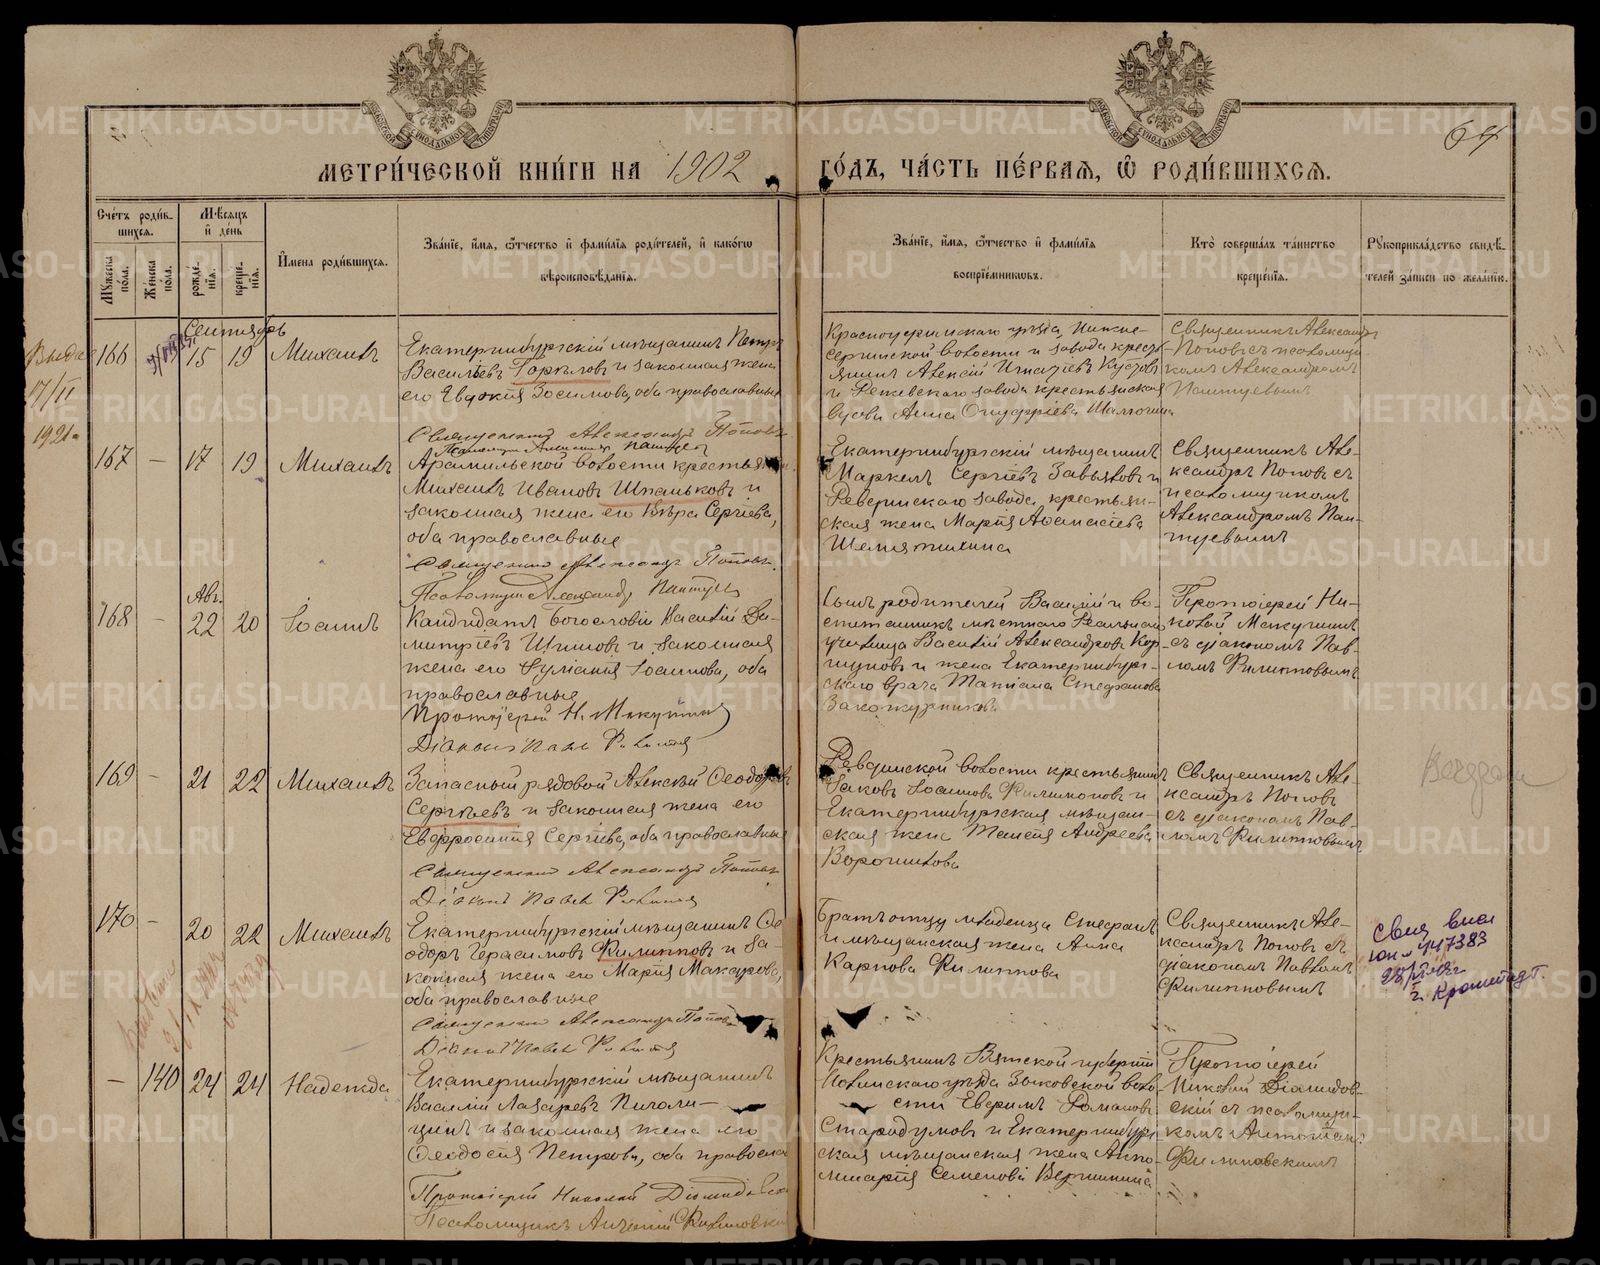 МЕТРИ́ЧЕСКОЙ КНИ́ГИ НА 1902 ГО́ДЪ, ЧА́СТЬ ПЕ́РВАЯ, Ѿ РОДИ́ВШИХСЯ.
64
Сче́тъ роди́вшихся.
Му́жеска по́ла.
Же́нска по́ла.
Мѣ́сяцъ и де́нь
рожде́нїя.
креще́нїя.
И҆мена роди́вшихся.
Зва́нїе, и҆мя, ѻ҆́тчество и҆ фами́лїя роди́телей, и҆ како́гѡ
вѣроисповѣ́данїя.
Зва́нїе, и҆мя, ѻ҆́тчество и҆ фами́лїя
воспрїе́мниковъ.
Кто̀ соверша́лъ та́инство
креще́нїя.
Рꙋкоприкла́дство свидѣ́-
телей за́писи по жела́нїю.
Сентябрь
166 15 19 Михаилъ
Екатеринбургскій мѣщанинъ Петръ
Васильевъ Горѣловъ и законная жена
его Евдокія Зосимова, оба православные
Священникъ Александръ Поповъ
Красноуфимскаго уѣзда, Нижне-
сергинской волости и завода кресть-
янинъ Алексій Игнатіевъ Кустовъ
и Режевского завода крестьянская
вдова Анна Онуфріева
Священникъ Александръ
Поповъ съ псаломщи
комъ Александромъ
Пантуевымъ
17/II
1921 г.
167 — 17 19 Михаилъ
Арамильской волости крестьянин
Михаилъ Ивановъ Шпаньковъ и
законная жена его Вѣра Сергіева,
оба православные
Священникъ Александръ Поповъ.
Псаломщикъ Александръ Пантуевъ
Екатеринбургскій мѣщанинъ
Маркелъ Сергіевъ Завьяловъ и
завода, крестьян-
ская жена Марія Аѳанасіева
Шемятихина
Священникъ Але-
ксандръ Поповъ съ
псаломщикомъ
Александромъ Пан-
туевымъ
Авг.
168 — 22 20 Іоаннъ
Кандидатъ Богословія Василій Ди-
митріевъ Шишовъ и законная
жена его Іуліанія Іоаннова, оба
православные
Протоіерей Н. Макушинъ
Діаконъ Павелъ Филипповъ
Сынъ родителей Василій и во-
спитанникъ мѣстнаго Реальнаго
училища Василій Александровъ Кор-
шуновъ и жена Екатеринбург-
скаго врача Татіана Стефанова
Протоіерей Ни-
колай Макушинъ
съ діакономъ Пав-
ломъ Филипповымъ
169 — 21 22 Михаилъ
Запасный рядовой Алексѣй Ѳеодоровъ
Сергѣевъ и законная жена его
Евфросинія Сергіева, оба православные
Священникъ Александръ Поповъ
Діаконъ Павелъ Филипповъ
Ревдинской волости крестьянинъ
Іаковъ Іоанновъ Филимоновъ и
Екатеринбургская мѣщан-
ская жена Таисія Андреева
Ворошилова
Священникъ Але-
ксандръ Поповъ
съ діакономъ Пав-
ломъ Филипповымъ
170 — 20 22 Михаилъ
Екатеринбургскій мѣщанинъ Ѳе
одоръ Герасимовъ Филипповъ и за-
конная жена его Марія Макарова,
оба православные
Священникъ Александръ Поповъ
Діаконъ Павелъ Филипповъ
Братъ отцу младенца Стефанъ
и мѣщанская жена Анна
Карпова Филиппова
Священникъ Але-
ксандръ Поповъ съ
діакономъ Павломъ
Филипповымъ
447383
г. Кронштадт.
— 140 24 24 Надежда
Екатеринбургскій мѣщанинъ
Василій Лазаревъ Пичали-
цинъ и законная жена его
Ѳеодосія Петрова, оба правосла
Протоіерей Николай Діомидовск
Псаломщикъ Антоній
Крестьянинъ Вятской губерніи
уѣзда Зыковской воло-
сти Романовъ
Стародумовъ и Екатеринбург-
ская мѣщанская жена Аппо-
линарія Семенова Вершинина
Протоіерей
Николай Діомидов-
скій съ псаломщи-
комъ Антоніемъ
METRIKI.GASO-URAL.RU